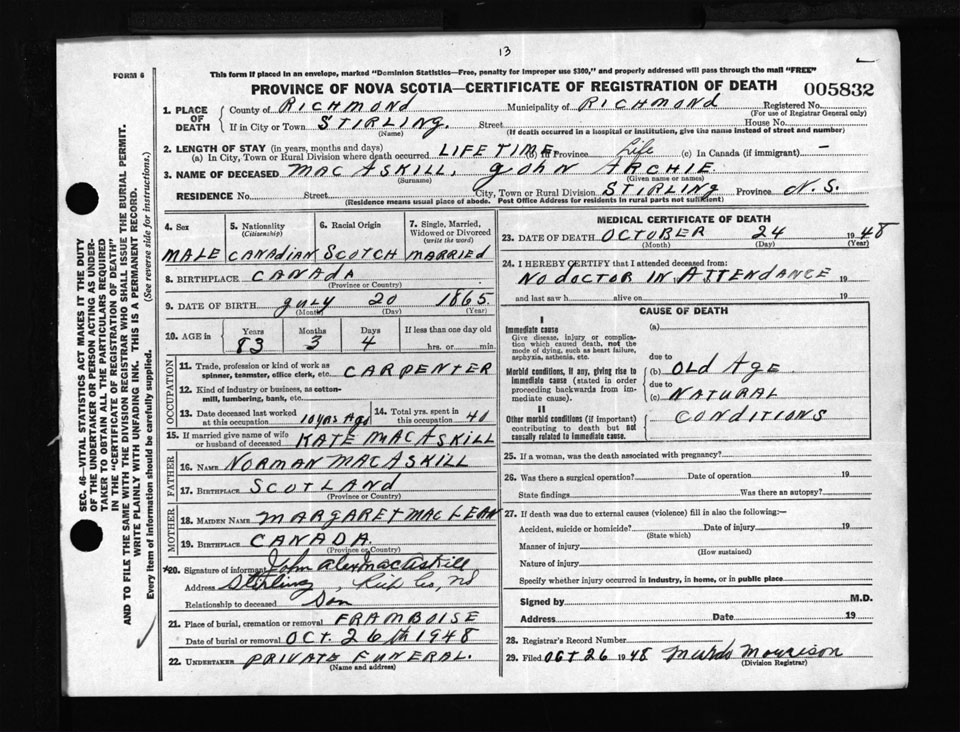 13
FORM 6
This form if placed in an envelope, marked "Dominion Statistics—Free, penalty for improper use $300," and properly addressed will pass through the mail "FREE"
PROVINCE OF NOVA SCOTIA—CERTIFICATE OF REGISTRATION OF DEATH 005832
1. PLACE OF DEATH
County of RICHMOND Municipality of RICHMOND Registered No.
(For use of Registrar General only)
If in City or Town STIRLING. Street House No.
(Name) (If death occurred in a hospital or institution, give the name instead of street and number)
2. LENGTH OF STAY (in years, months and days)
(a) In City, Town or Rural Division where death occurred LIFETIME (b) In Province Life (c) In Canada (if immigrant) —
3. NAME OF DECEASED MAC ASKILL, JOHN ARCHIE.
(Surname) (Given name or names)
RESIDENCE No. Street City, Town or Rural Division STIRLING Province N.S.
(Residence means usual place of abode. Post Office Address for residents in rural parts not sufficient)
4. Sex 5. Nationality (Citizenship) 6. Racial Origin 7. Single, Married, Widowed or Divorced (write the word)
MALE CANADIAN SCOTCH MARRIED
8. BIRTHPLACE CANADA
(Province or Country)
9. DATE OF BIRTH July 20 1865.
(Month) (Day) (Year)
10. AGE in Years Months Days If less than one day old
83 3 4 hrs. or min.
OCCUPATION
11. Trade, profession or kind of work as spinner, teamster, office clerk, etc. CARPENTER
12. Kind of industry or business, as cotton-mill, lumbering, bank, etc.
13. Date deceased last worked at this occupation 10 yrs Ago 14. Total yrs. spent in this occupation 40
15. If married give name of wife or husband of deceased KATE MACASKILL
FATHER
16. NAME NORMAN MACASKILL
17. BIRTHPLACE SCOTLAND
(Province or Country)
MOTHER
18. MAIDEN NAME MARGARET MACLEAN
19. BIRTHPLACE CANADA.
(Province or Country)
*20. Signature of informant John Alex MacAskill
Address Stirling, Rich Co, NS
Relationship to deceased Son
21. Place of burial, cremation or removal FRAMBOISE
Date of burial or removal OCT. 26th 1948
22. UNDERTAKER PRIVATE FUNERAL.
(Name and address)
MEDICAL CERTIFICATE OF DEATH
23. DATE OF DEATH OCTOBER 24 1948
(Month) (Day) (Year)
24. I HEREBY CERTIFY that I attended deceased from:
NO DOCTOR IN ATTENDANCE 19
and last saw h alive on 19
CAUSE OF DEATH
I
Immediate cause (a)
Give disease, injury or complication which caused death, not the mode of dying, such as heart failure, asphyxia, asthenia, etc.
due to
Morbid conditions, if any, giving rise to immediate cause (stated in order proceeding backwards from immediate cause).
(b) OLD AGE
due to
(c) NATURAL
CONDITIONS
II
Other morbid conditions (if important) contributing to death but not causally related to immediate cause.
25. If a woman, was the death associated with pregnancy?
26. Was there a surgical operation? Date of operation 19
State findings Was there an autopsy?
27. If death was due to external causes (violence) fill in also the following:—
Accident, suicide or homicide? Date of injury 19
(State which)
Manner of injury
(How sustained)
Nature of injury
Specify whether injury occurred in industry, in home, or in public place
Signed by M.D.
Address Date 19
28. Registrar's Record Number
29. Filed OCT 26 1948 Murdo Morrison
(Division Registrar)
SEC. 46—VITAL STATISTICS ACT MAKES IT THE DUTY
OF THE UNDERTAKER OR PERSON ACTING AS UNDERTAKER
TO OBTAIN ALL THE PARTICULARS REQUIRED
IN THE "CERTIFICATE OF REGISTRATION OF DEATH"
AND TO FILE THE SAME WITH THE DIVISION REGISTRAR WHO SHALL ISSUE THE BURIAL PERMIT.
WRITE PLAINLY WITH UNFADING INK. THIS IS A PERMANENT RECORD.
Every item of information should be carefully supplied. (See reverse side for instructions.)